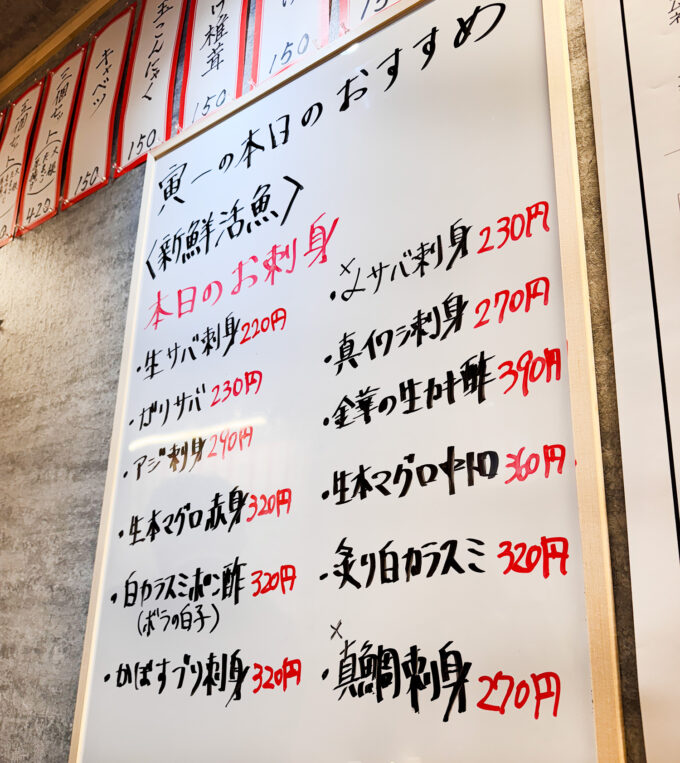 玉こんにゃく
150
椎茸
150
150
150
キャベツ
150
三個セット
420
寅一の本日のおすすめ
〈新鮮活魚〉
本日のお刺身
・生サバ刺身220円
・ガリサバ230円
・アジ刺身290円
・生本マグロ赤身320円
・白カラスミポン酢320円
(ボラの白子)
・かぼすブリ刺身320円
×
・〆サバ刺身230円
・真イワシ刺身270円
・金華の生カキ酢390円
・生本マグロ中トロ360円
・炙り白カラスミ320円
×
・真鯛刺身270円